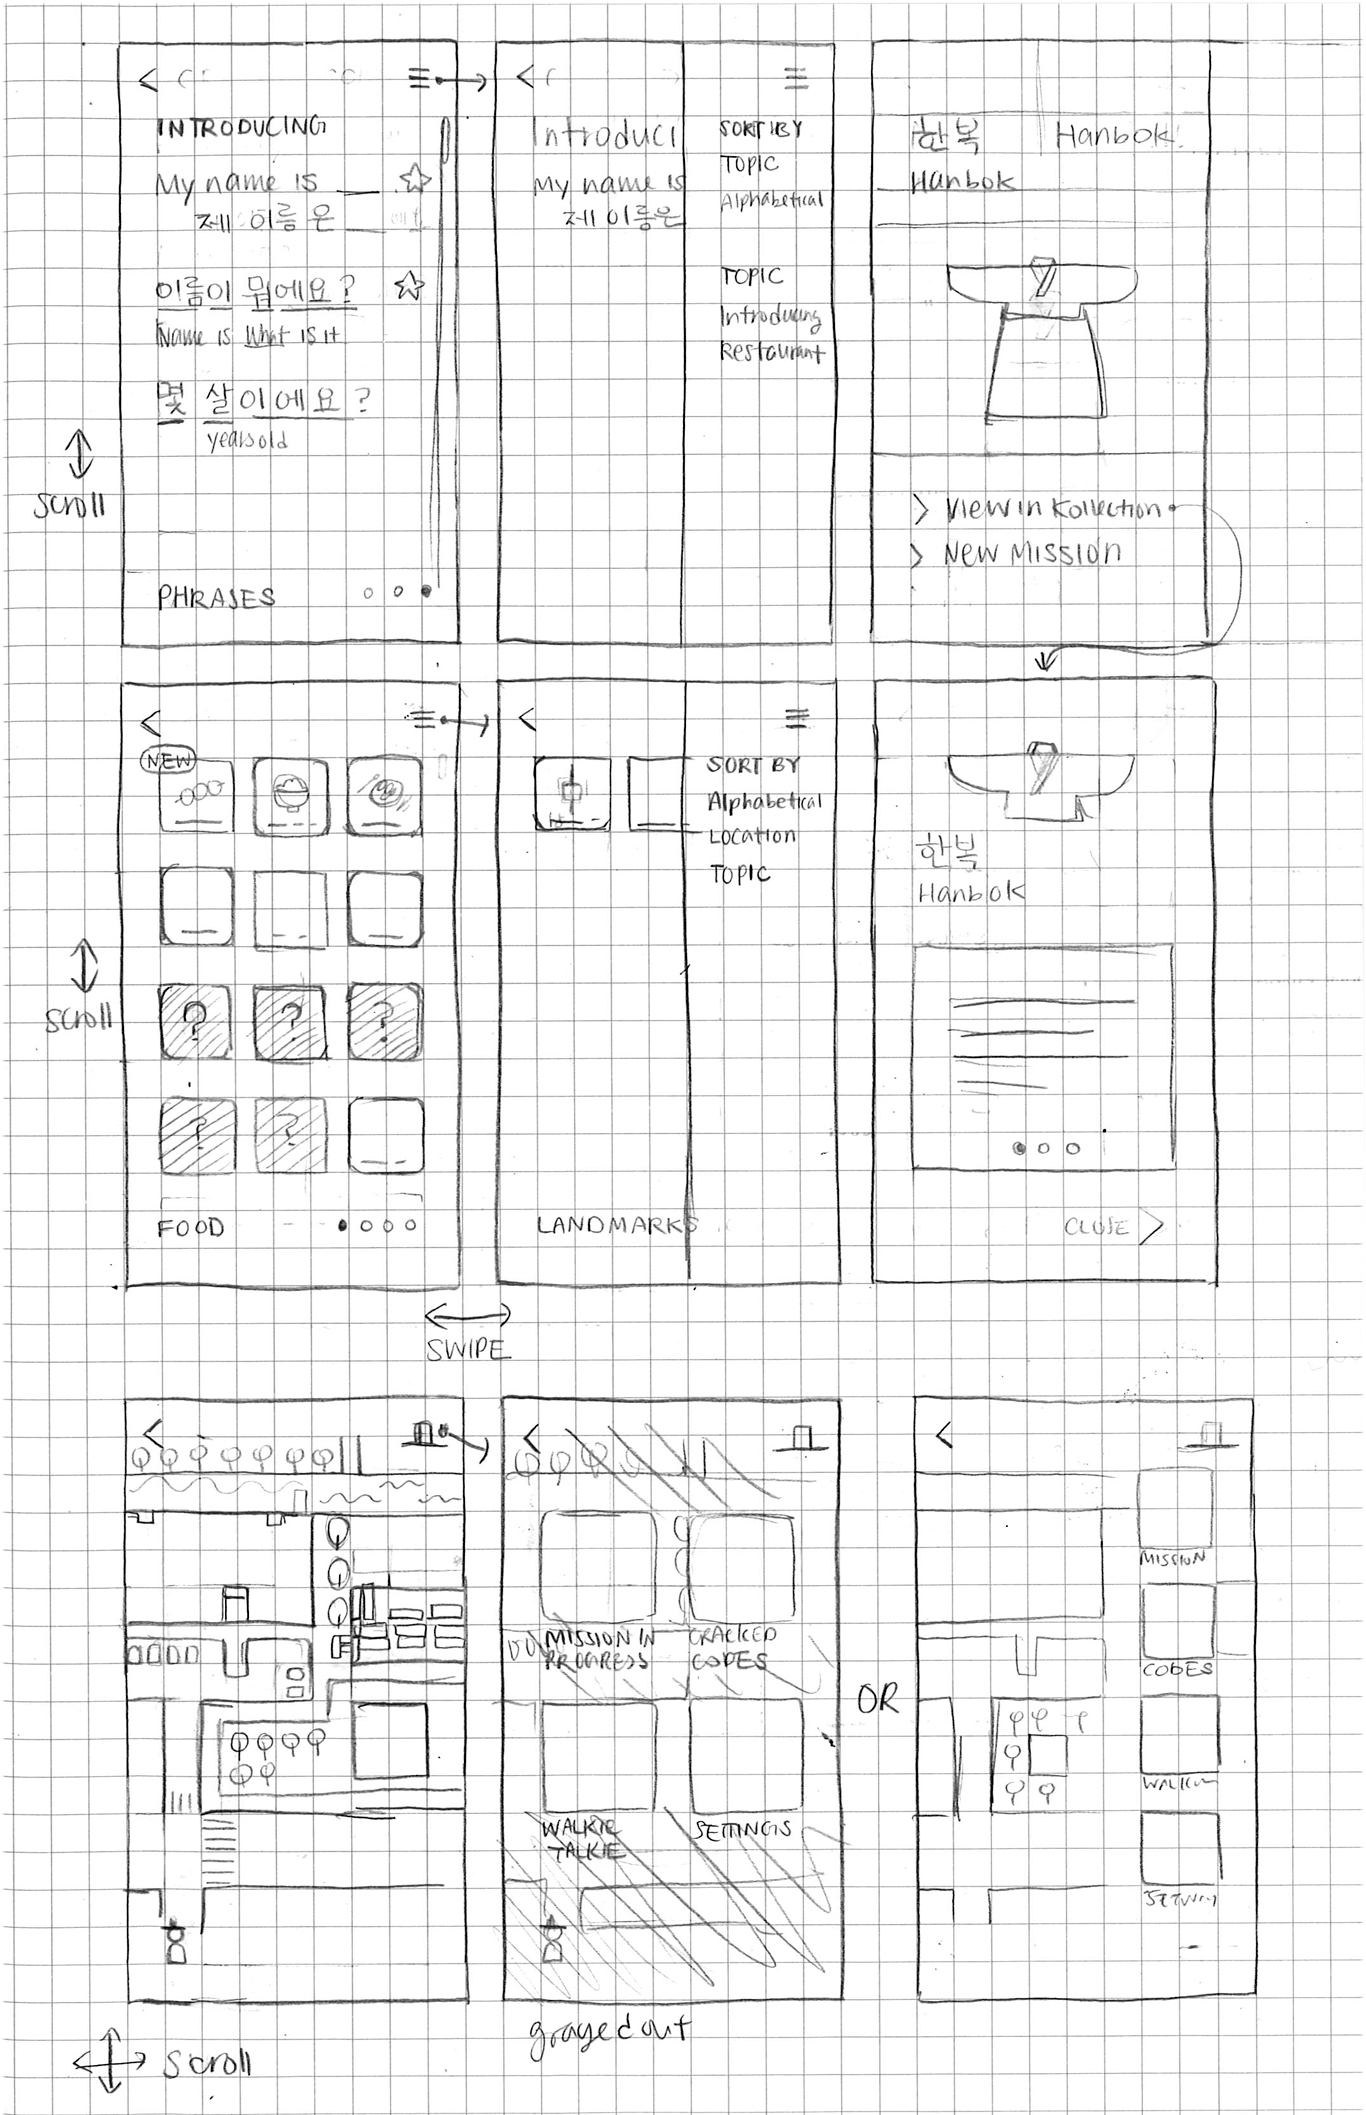 INTRODUCING
My name is __
제 이름은 __
이름이 뭡에요?
Name is What is it
몇 살이에요?
years old
PHRASES
Scroll
Introduci
My name is
제 이름은
SORT BY
TOPIC
Alphabetical
TOPIC
Introducing
Restaurant
한복 Hanbok
Hanbok
> View in Kollection
> New Mission
NEW
? ? ?
? ?
FOOD
Scroll
SORT BY
Alphabetical
Location
TOPIC
LANDMARKS
한복
Hanbok
CLOSE >
SWIPE
MISSION IN PROGRESS
CRACKED CODES
WALKIE TALKIE
SETTINGS
grayed out
OR
MISSION
CODES
Scroll